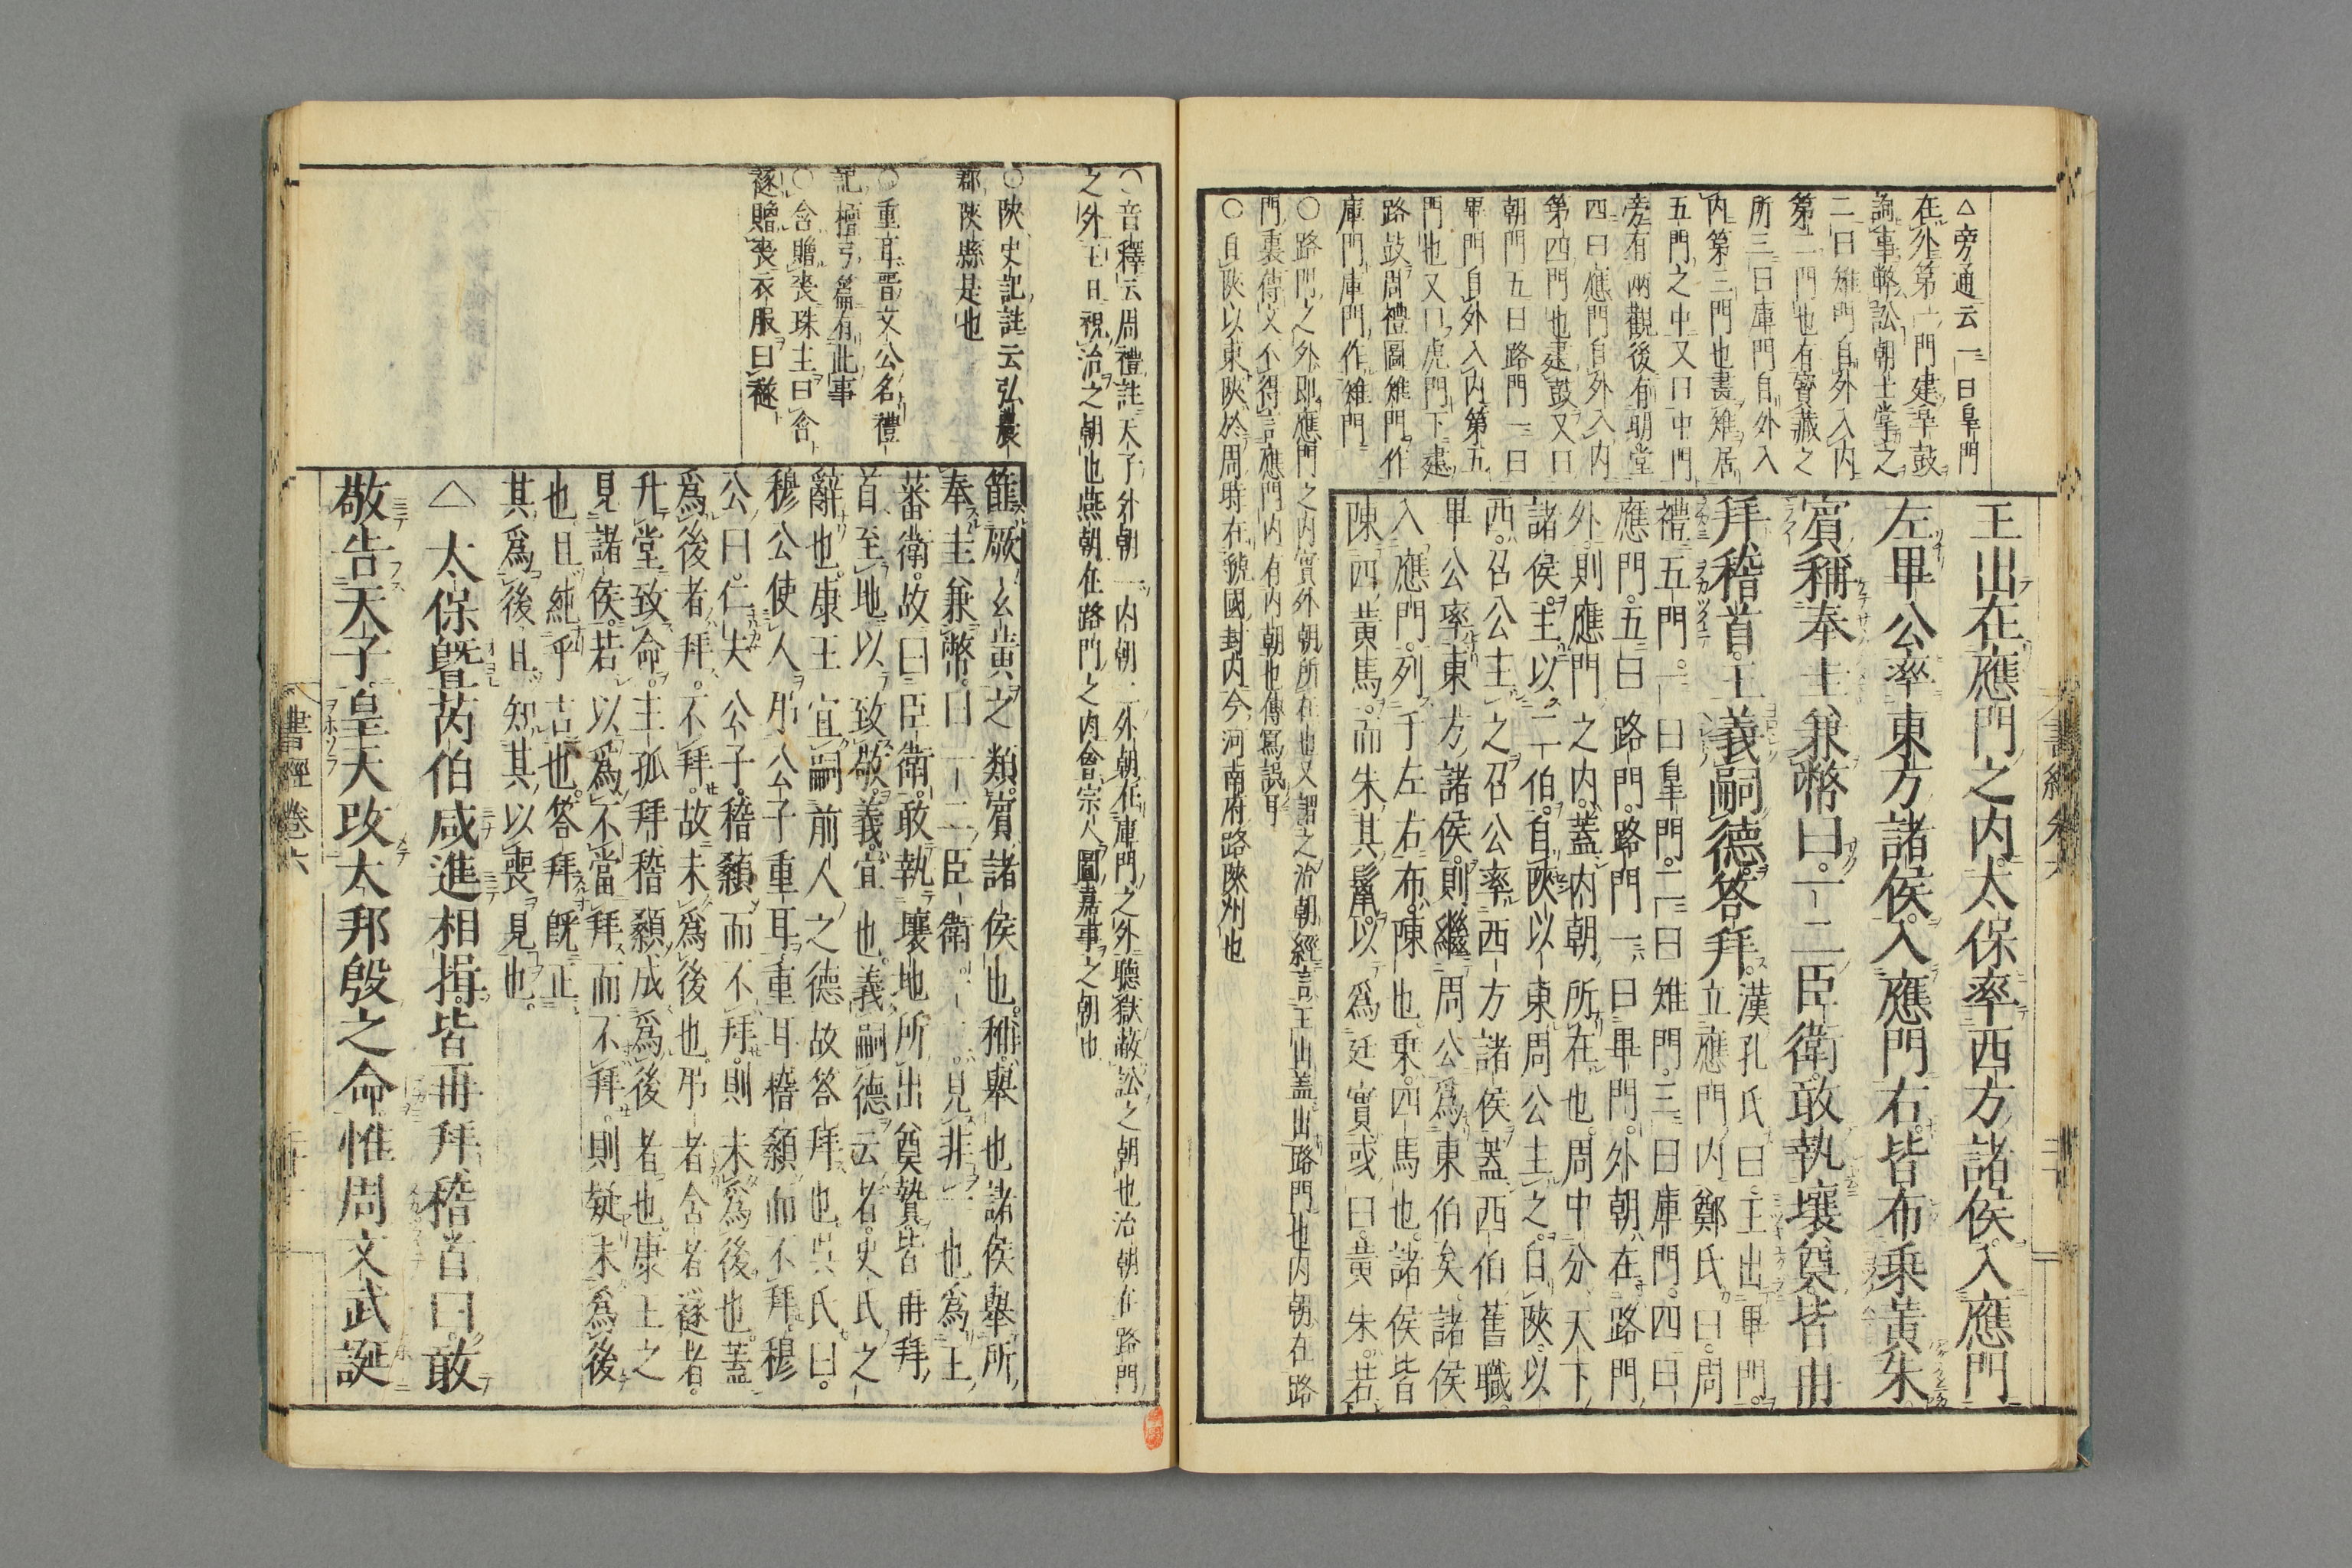 △旁通云一曰皐門
在外第一門建皐鼓
詢事弊訟朝士掌之
二曰雉門自外入内
第二門也有寳藏之
所三曰庫門自外入
内第三門也書雉居
五門之中又曰中門
旁有兩觀後有明堂
四曰應門自外入内
第四門也建鼓又曰
朝門五曰路門一曰
畢門自外入内第五
門也又曰虎門下建
路鼓周禮圖雉門作
庫門庫門作雉門
王出在應門之内太保率西方諸侯入應門
左畢公率東方諸侯入應門右皆布乗黄朱
賓稱奉圭兼幣曰一二臣衛敢執壤奠皆再
拜稽首王義嗣德答拜
漢孔氏曰王出畢門
立應門内鄭氏曰周
禮五門一曰皐門二曰雉門三曰庫門四曰
應門五曰路門路門一曰畢門外朝在路門
外則應門之内蓋内朝所在也周中分天下
諸侯主以二伯自陝以東周公主之自陝以
西召公主之召公率西方諸侯蓋西伯舊職
畢公率東方諸侯則繼周公爲東伯矣諸侯
入應門列于左右布陳也乗四馬也諸侯皆
陳四黄馬而朱其鬣以爲廷實或曰黄朱若
○路門之外即應門之内實外朝所在也又謂之治朝經言王出蓋出路門也内朝在路
門裏傳文不得言應門内有内朝也傳寫誤耳
○自陝以東陝於周時在虢國封内今河南府路陝州也
○音釋云周禮註天子外朝一内朝二外朝在庫門之外聽獄蔽訟之朝也治朝在路門
之外王日視治之朝也燕朝在路門之内會宗人圖嘉事之朝也
○陝史記註云弘農
郡陝縣是也
○重耳晋文公名禮
記檀弓篇有此事
○含贈喪珠玉曰含
襚贈喪衣服曰襚
篚厥玄黄之類賓諸侯也稱舉也諸侯舉所
奉圭兼幣曰一二臣衛一二見非一也爲王
蕃衛故曰臣衛敢執壤地所出奠贄皆再拜
首至地以致敬義宜也義嗣德云者史氏之
辭也康王宜嗣前人之德故答拜也呉氏曰
穆公使人弔公子重耳重耳稽顙而不拜穆
公曰仁夫公子稽顙而不拜則未爲後也蓋
爲後者拜不拜故未爲後也弔者含者襚者
升堂致命主孤拜稽顙成爲後者也康王之
見諸侯若以爲不當拜而不拜則疑未爲後
也且純乎吉也答拜既正
其爲後且知其以喪見也
△太保曁芮伯咸進相揖皆再拜稽首曰敢
敬告天子皇天改大邦殷之命惟周文武誕
書經 卷六